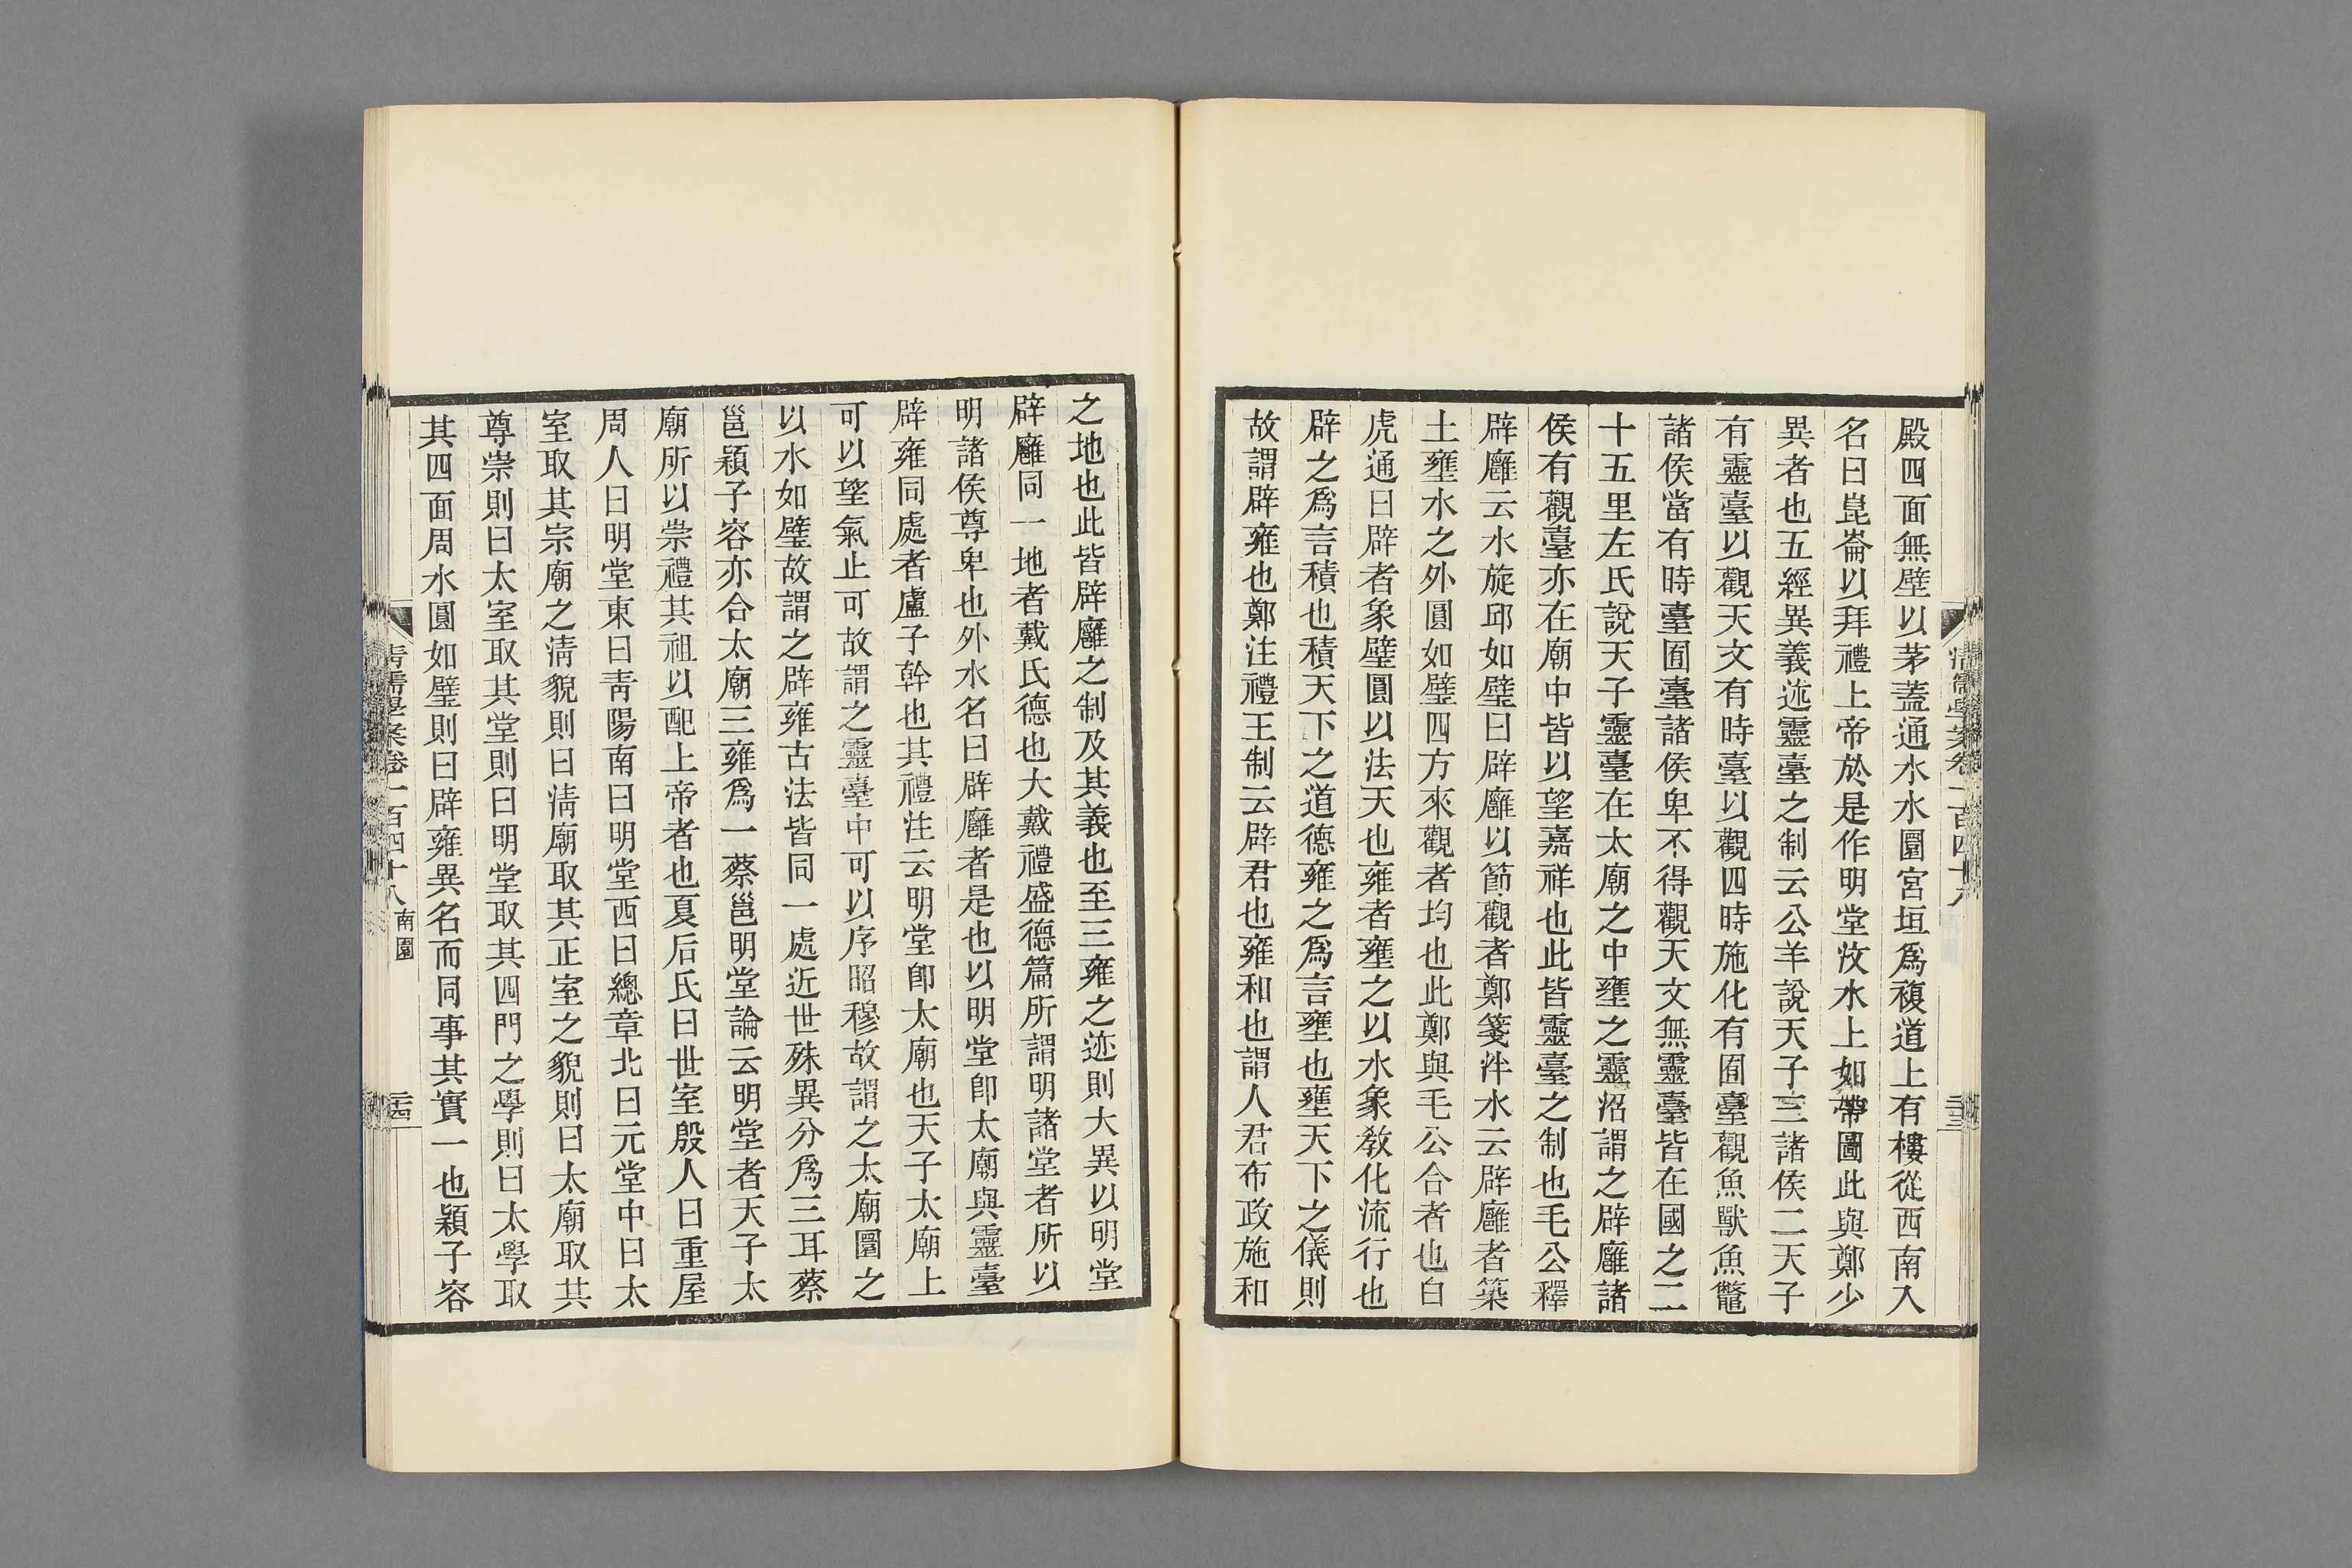 殿四面無壁以茅蓋通水水圜宮垣爲複道上有樓從西南入
名曰崑崙以拜禮上帝於是作明堂汶水上如帶圖此與鄭少
異者也五經異義述靈臺之制云公羊說天子三諸侯二天子
有靈臺以觀天文有時臺以觀四時施化有囿臺觀魚獸魚鼈
諸侯當有時臺囿臺諸侯卑不得觀天文無靈臺皆在國之二
十五里左氏說天子靈臺在太廟之中壅之靈沼謂之辟廱諸
侯有觀臺亦在廟中皆以望嘉祥也此皆靈臺之制也毛公釋
辟廱云水旋邱如璧曰辟廱以節觀者鄭箋泮水云辟廱者築
土壅水之外圓如璧四方來觀者均也此鄭與毛公合者也白
虎通曰辟者象璧圓以法天也雍者壅之以水象敎化流行也
辟之爲言積也積天下之道德雍之爲言壅也壅天下之儀則
故謂辟雍也鄭注禮王制云辟君也雍和也謂人君布政施和
之地也此皆辟廱之制及其義也至三雍之迹則大異以明堂
辟廱同一地者戴氏德也大戴禮盛德篇所謂明諸堂者所以
明諸侯尊卑也外水名曰辟廱者是也以明堂卽太廟與靈臺
辟雍同處者盧子幹也其禮注云明堂卽太廟也天子太廟上
可以望氣止可故謂之靈臺中可以序昭穆故謂之太廟圜之
以水如璧故謂之辟雍古法皆同一處近世殊異分爲三耳蔡
邕穎子容亦合太廟三雍爲一蔡邕明堂論云明堂者天子太
廟所以崇禮其祖以配上帝者也夏后氏曰世室殷人曰重屋
周人曰明堂東曰靑陽南曰明堂西曰總章北曰元堂中曰太
室取其宗廟之淸貌則曰淸廟取其正室之貌則曰太廟取其
尊崇則曰太室取其堂則曰明堂取其四門之學則曰太學取
其四面周水圓如璧則曰辟雍異名而同事其實一也穎子容
淸儒學案卷一百四十八 南園 二十四